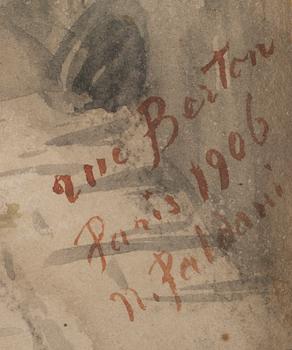 rue Berton
Paris 1906
n. Paldani